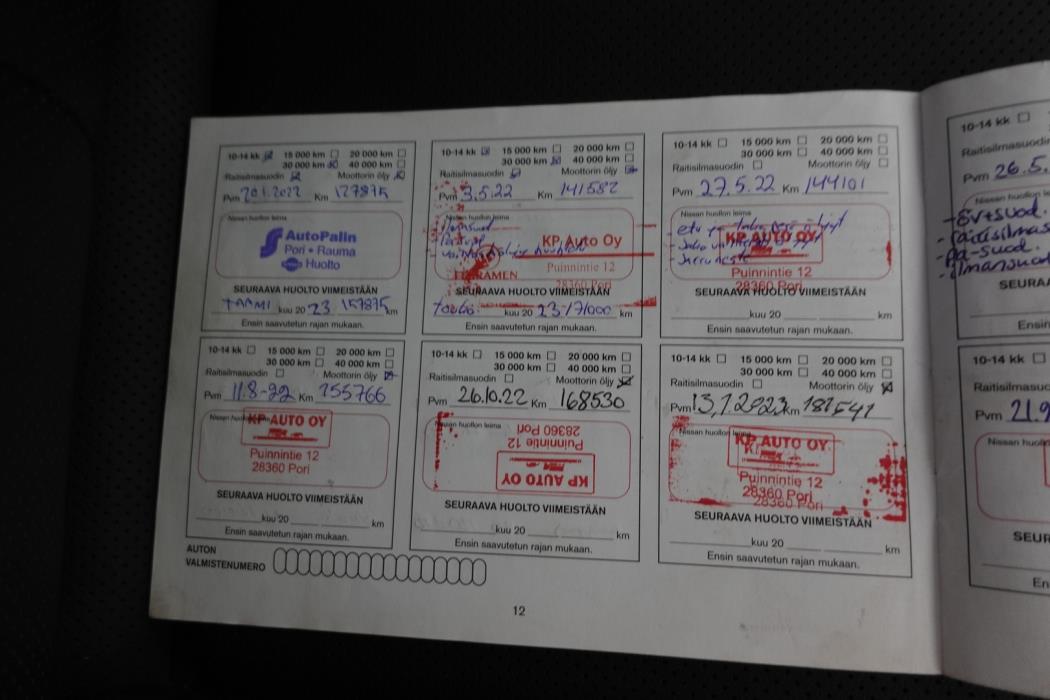 10-14 kk 15 000 km 20 000 km
30 000 km 40 000 km
Raitisilmasuodin Moottorin öljy
Pvm 20.1.2022 Km 127875
Nissan huollon leima
AutoPalin
Pori • Rauma
Huolto
SEURAAVA HUOLTO VIIMEISTÄÄN
TAMMI kuu 20 23 157875 km
Ensin saavutetun rajan mukaan.
10-14 kk 15 000 km 20 000 km
30 000 km 40 000 km
Raitisilmasuodin Moottorin öljy
Pvm 3.5.22 Km 141582
Nissan huollon leima
KP Auto Oy
Puinnintie 12
28360 Pori
SEURAAVA HUOLTO VIIMEISTÄÄN
kuu 20 23 km
Ensin saavutetun rajan mukaan.
10-14 kk 15 000 km 20 000 km
30 000 km 40 000 km
Raitisilmasuodin Moottorin öljy
Pvm 27.5.22 Km 144101
Nissan huollon leima
KP AUTO OY
Puinnintie 12
28360 Pori
SEURAAVA HUOLTO VIIMEISTÄÄN
kuu 20 km
Ensin saavutetun rajan mukaan.
10-14 kk 15 000 km 20 000 km
30 000 km 40 000 km
Raitisilmasuodin Moottorin öljy
Pvm 11.8-22 Km 155766
KP AUTO OY
Puinnintie 12
28360 Pori
SEURAAVA HUOLTO VIIMEISTÄÄN
kuu 20 km
Ensin saavutetun rajan mukaan.
10-14 kk 15 000 km 20 000 km
30 000 km 40 000 km
Raitisilmasuodin Moottorin öljy
Pvm 26.10.22 Km 168530
Nissan huollon leima
KP AUTO OY
Puinnintie 12
28360 Pori
SEURAAVA HUOLTO VIIMEISTÄÄN
kuu 20 km
Ensin saavutetun rajan mukaan.
10-14 kk 15 000 km 20 000 km
30 000 km 40 000 km
Raitisilmasuodin Moottorin öljy
Pvm 13,1.2023 km 181541
Nissan huollon leima
KP AUTO OY
Puinnintie 12
28360 Pori
28360 Pori
SEURAAVA HUOLTO VIIMEISTÄÄN
kuu 20 km
Ensin saavutetun rajan mukaan.
AUTON
VALMISTENUMERO
12
10-14 kk
Raitisilmasuodin
Pvm 26.5.
Nissan huollon leima
-öv+suod.
-raitisilmas
-pa-suod.
-ilmansuod
SEURA
Ensin
10-14 kk
Raitisilmasuod
Pvm 21.9
Nissan huol
SEUR
En